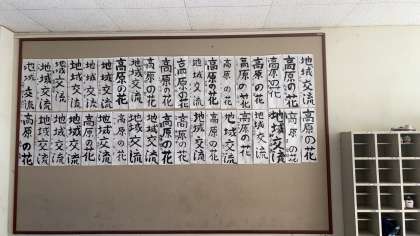 地域交流
高原の花
高原の花
高原の花
高原の花
高原の花
高原の花
高原の花
高原の花
高原の花
高原の花
地域交流
高原の花
地域交流
地域交流
地域交流
地域交流
地域交流
地域交流
高原の花
高原の花
地域交流
地域交流
高原の花
地域交流
高原の花
地域交流
高原の花
高原の花
地域交流
地域交流
高原の花
地域交流
高原の花
地域交流
地域交流
地域交流
高原の花